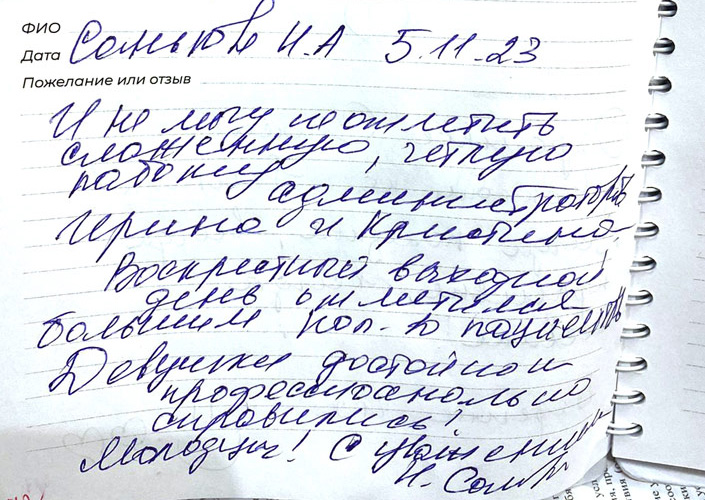 ФИО
Дата Саньков Н.А 5.11.23
Пожелание или отзыв
И не могу не отметить
слаженную, четкую
работу
администраторов
Ирина и Кристина.
Воскресный выходной
день отметился
большим кол-во пациентов
Девушки достойно и
профессионально
справились!
Молодцы! С уважением
Н.